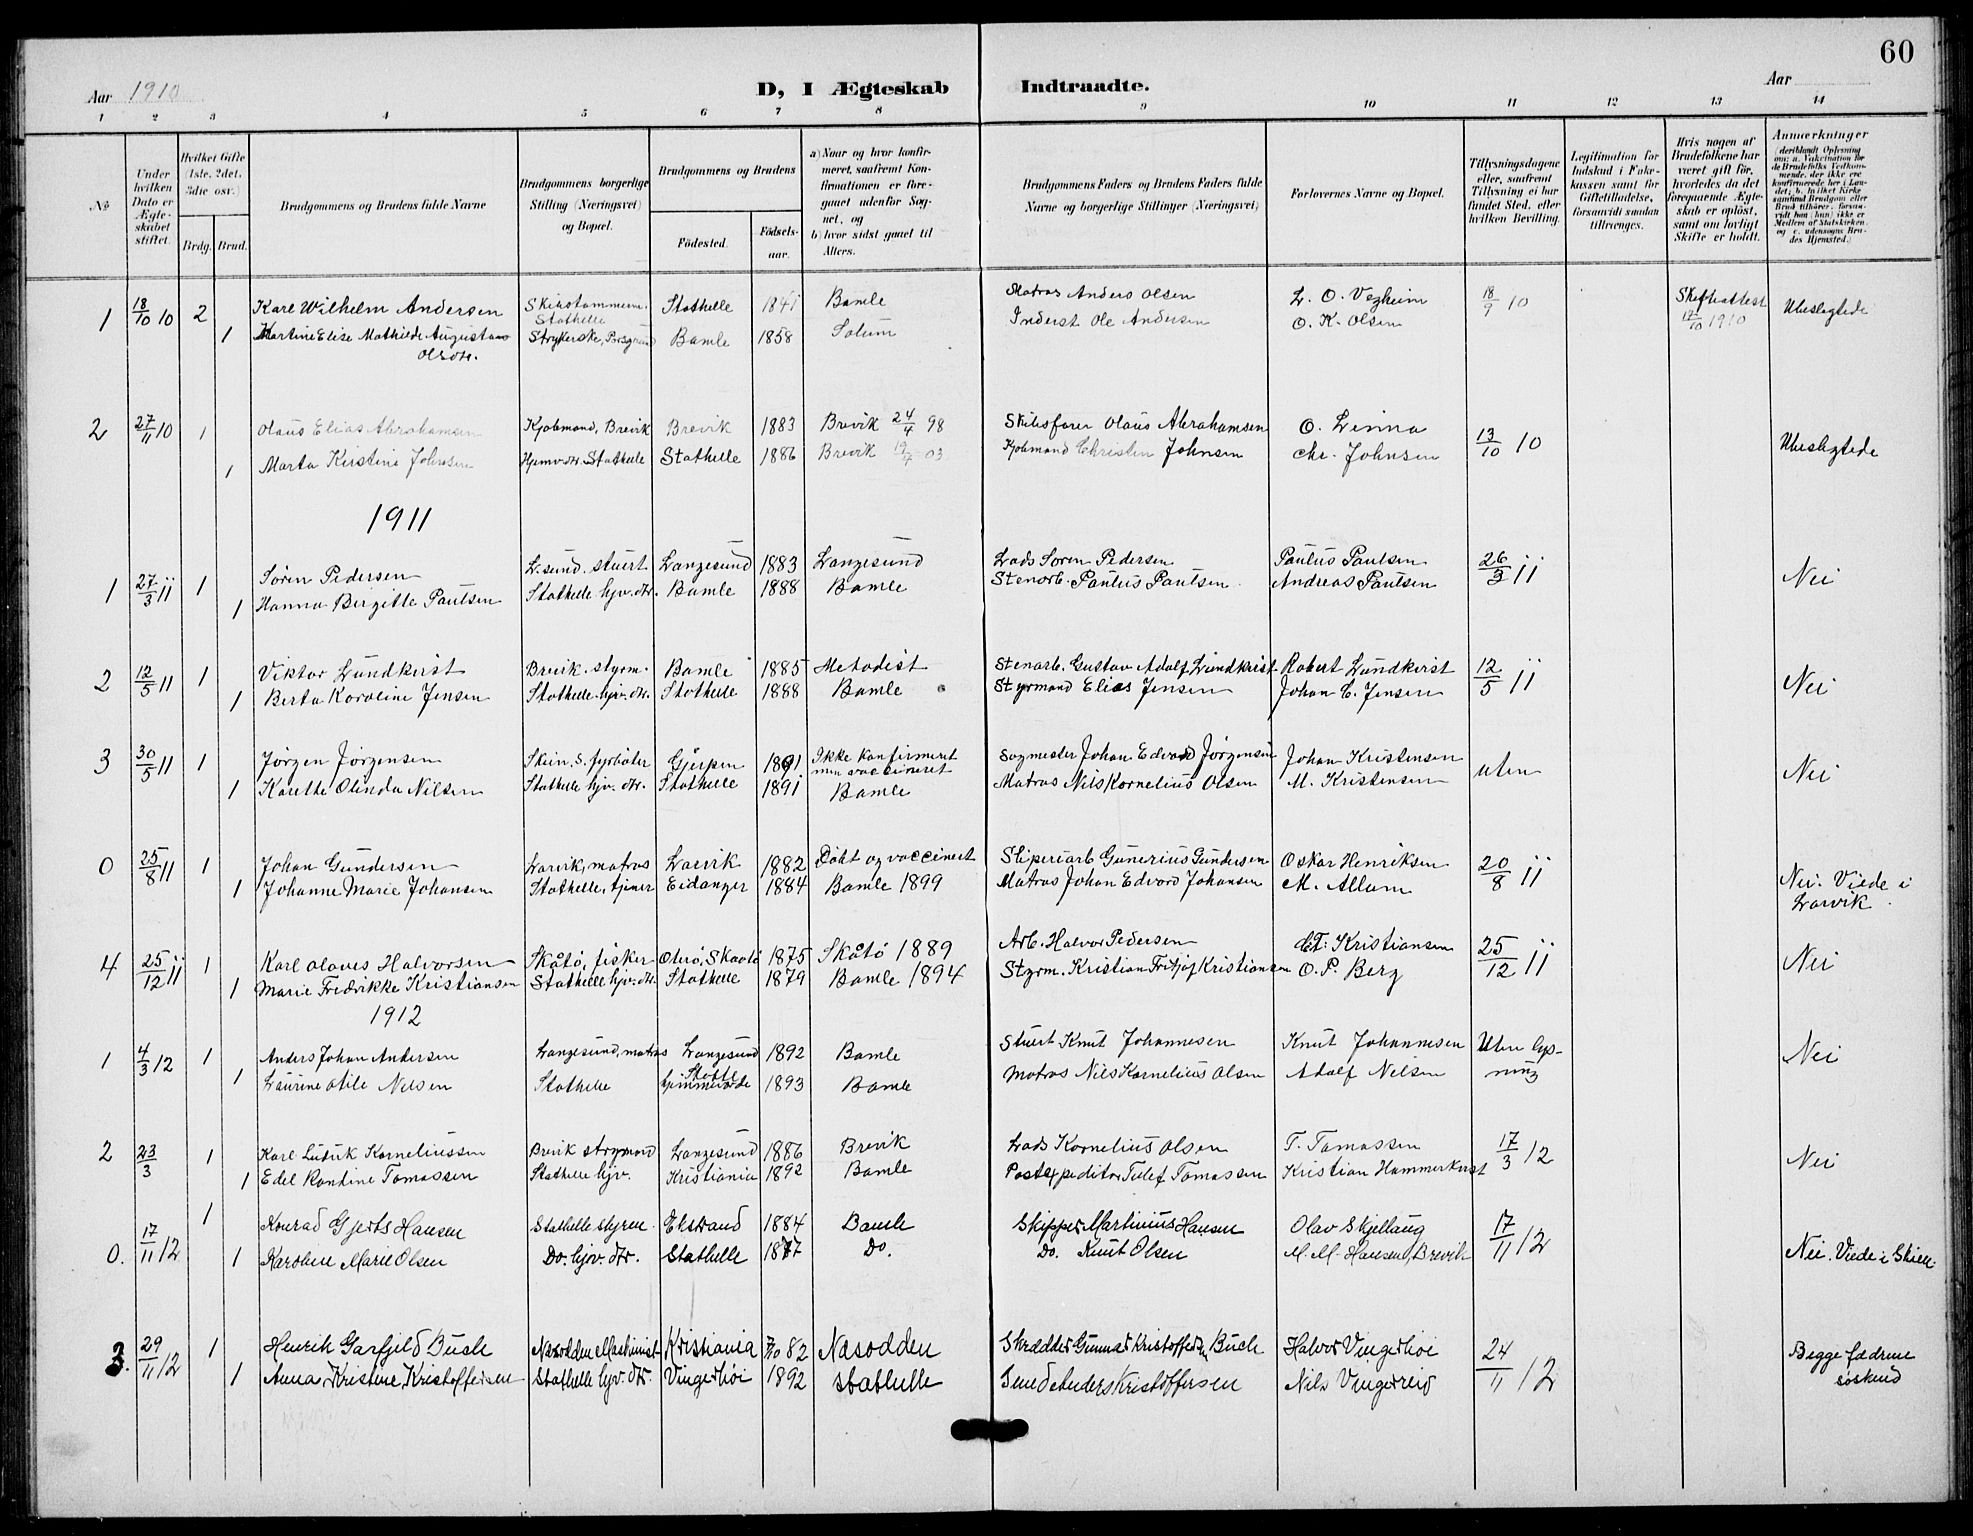 60
Aar 1910
D, I Ægteskab Indtraadte.
Aar
1 2 3 4 5 6 7 8 9 10 11 12 13 14
No
Under hvilken Dato er Ægteskabet stiftet.
Hvilket Gifte (1ste, 2det, 3die osv.)
Brdg. Brud.
Brudgommens og Brudens fulde Navne
Brudgommens borgerlige Stilling (Næringsvei) og Bopæl.
Brudgommens og Brudens
Födested.
Födselsaar.
a) Naar og hvor konfirmeret, saafremt Konfirmationen er foregaaet udenfor Sognet, og
b) hvor sidst gaaet til Alters.
Brudgommens Faders og Brudens Faders fulde Navne og borgerlige Stillinger (Næringsvei)
Forlovernes Navne og Bopæl.
Tillysningsdagene eller, saafremt Tillysning ei har fundet Sted, efter hvilken Bevilling.
Legitimation for Indskud i Enkekassen samt for Giftetilladelse, forsaavidt saadan tiltrænges.
Hvis nogen af Brudefolkene har været gift för, hvorledes da det foregaaende Ægteskab er oplöst, samt om lovligt Skifte er holdt.
Anmærkninger
1 18/10 10 2 Karl Wilhelm Andersen Stathelle 1841 Bamle Matros Anders Olsen L. O. Vegheim 18/9 10 Skifteattest 17/10 1910 Ubeslegtede
Stathelle
1 Martine Elise Mathilde Augusta Strykerske, Porsgrund Bamle 1858 Solum Inderst Ole Andersen O. K. Olsen
Olsen.
2 27/11 10 1 Olaus Elias Abrahamsen Kjøbmand, Brevik Brevik 1883 Brevik 24/4 98 Skibsfører Olaus Abrahamsen O. Linna 13/10 10 Ubeslegtede
1 Marta Kirstine Johnsen Hjemv. dtr. Stathelle Stathelle 1886 Brevik 19/4 03 Kjøbmand Christen Johnsen Chr. Johnsen
1911
1 27/3 11 1 Søren Pedersen L.sund. stuert Langesund 1883 Langesund Lods Søren Pedersen Paulus Paulsen 26/3 11 Nei
1 Hanna Bergitte Paulsen Stathelle hjv. dtr. Bamle 1888 Bamle Stenarb. Paulus Paulsen Andreas Paulsen
2 12/5 11 1 Viktor Lundkvist Brevik. styrm. Bamle 1885 Metodist Stenarb. Gustav Adolf Lundkvist Robert Lundkvist 12/5 11 Nei
1 Berta Karoline Jensen Stathelle hjv. dtr. Stathelle 1888 Bamle Styrmand Elias Jensen Johan E. Jensen
3 30/5 11 1 Jørgen Jørgensen Skien. S. fyrbøter Gjerpen 1891 Ikke konfirmeret Sagmester Johan Edvard Jørgensen Johan Kristensen uten Nei
men vaccineret
1 Karethe Olinda Nilsen Stathelle hjv. dtr. Stathelle 1891 Bamle Matros Nils Kornelius Olsen M. Kristensen
0 25/8 11 1 Johan Gundersen Larvik, matros Larvik 1882 Døbt og vaccinert Sliperiarb Gunerius Gundersen Oskar Henriksen 20/8 11 Nei. Viede i
Larvik.
1 Johanne Marie Johansen Stathelle, tjener Eidanger 1884 Bamle 1899 Matros Johan Edvard Johansen M. Allum
4 25/12 11 1 Karl Olaves Halvorsen Skåtö, fisker Oterö, Skaatö 1875 Skåtö 1889 Arb. Halvor Pedersen Kristiansen 25/12 11 Nei
1 Marie Fredrikke Kristiansen Stathelle hjv. dtr. Stathelle 1879 Bamle 1894 Styrm. Kristian Fritjof Kristiansen O. P. Berg
1912
1 4/3 12 1 Anders Johan Andersen Langesund, matros Langesund 1892 Bamle Stuert Knut Johannesen Knut Johannesen Uten lysning Nei
1 Laurine Otile Nilsen Stathelle hjemmeværende 1893 Bamle Matros Nils Kornelius Olsen Adolf Nilsen
2 23/3 1 Karl Ludvik Korneliussen Brevik styrmand Langesund 1886 Brevik Lods Kornelius Olsen T. Tomassen 17/3 12 Nei
1 Edel Tomassen Stathelle hjv. Kristiania 1892 Bamle Postexpeditør Tellef Tomassen Kristian Hammerkvist
0. 17/11 12 1 Konrad Gjerts Hansen Stathelle styrm. Ekstrand 1884 Bamle Skipper Martinius Hansen Olav Skjellaug 17/11 12 Nei. Viede i Skien.
1 Karoline Marie Olsen Do. hjv. dtr. Stathelle 1877 Do. Do. Knut Olsen M. M. Hansen, Brevik
3. 29/11 12 1 Henrik Garfjeld Buch Næsodden Maskinist Kristiania 7/10 82 Næsodden Skrædder Gunnar Kristoffersen Buch Halvor Vingereiø 24/11 12 Begge fædrene
søskend
1 Anna Kristine Kristoffersen Stathelle hjv. dtr. 1892 Stathelle Smed Anders Kristoffersen Nils Vingereid